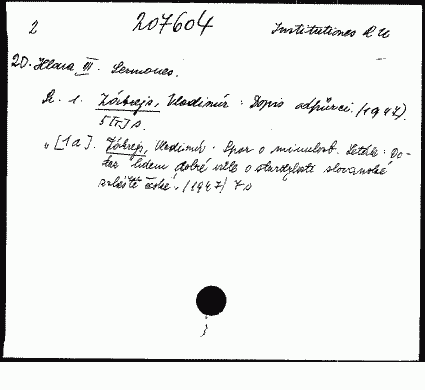 2 207604 Institutiones R U
2D. Hlava III. Sermones.
R. 1. Zábrejs, Vladimír: Dopis odpůrci. (1947).
5 [1] s.
" [1a]. Zábrejs, Vladimír. Spor o minulost. Leták: Do-
taz lidem dobré vůle o starobylosti slovanské
zvláště české. (1947) 7 s